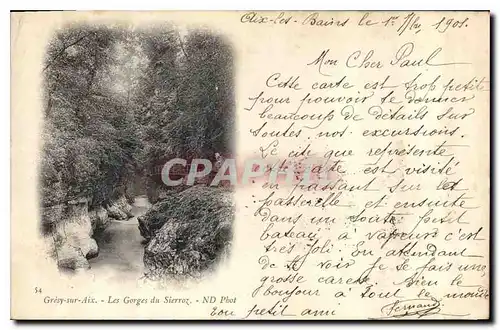 Aix-les-Bains le 1er 7bre 1901.
Mon Cher Paul
Cette carte est trop petite
pour pouvoir te donner
beaucoup de détails sur
toutes nos excursions.
Le site que représente
carte est visité
en passant sur la
passerelle et ensuite
dans un tout petit
bateau à vapeur c'est
très joli En attendant
de te voir je te fais une
grosse caresse Bien le
bonjour à tout le monde
Ton petit ami Fernand
CPARAMA
54
Grésy-sur-Aix. - Les Gorges du Sierroz. - ND Phot